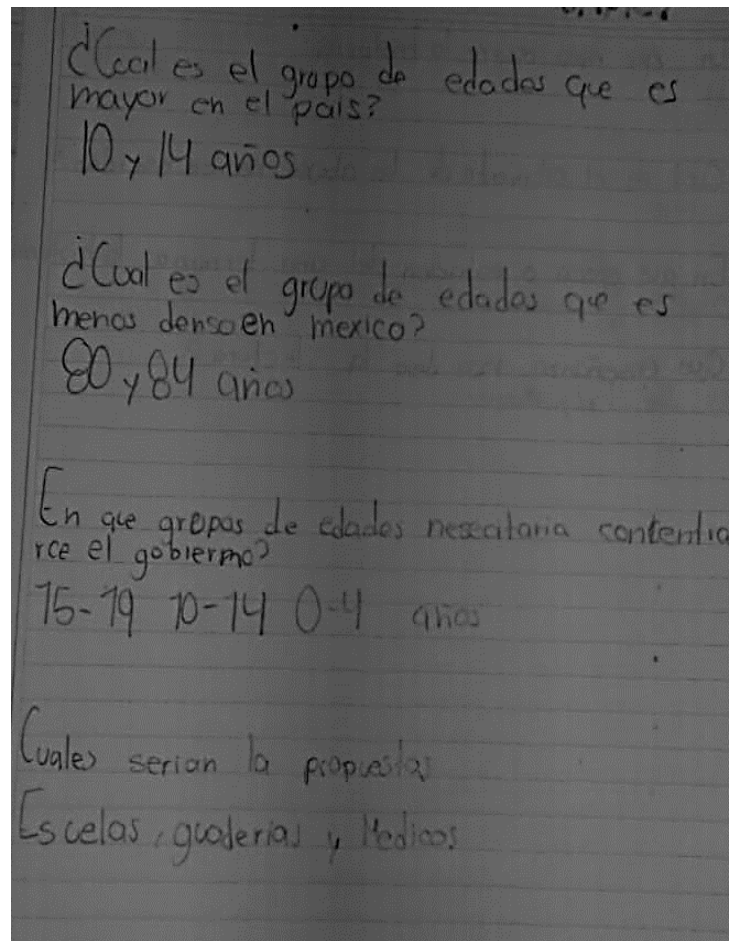 ¿Cual es el grupo de edades que es
mayor en el pais?
10 y 14 años
¿Cual es el grupo de edades que es
menos denso en mexico?
80 y 84 años
En que grupos de edades nesecitaria contentra
rce el gobierno?
15-19 10-14 0-4 años
Cuales serian la propuestas
Escelas, guaderias y Medicos